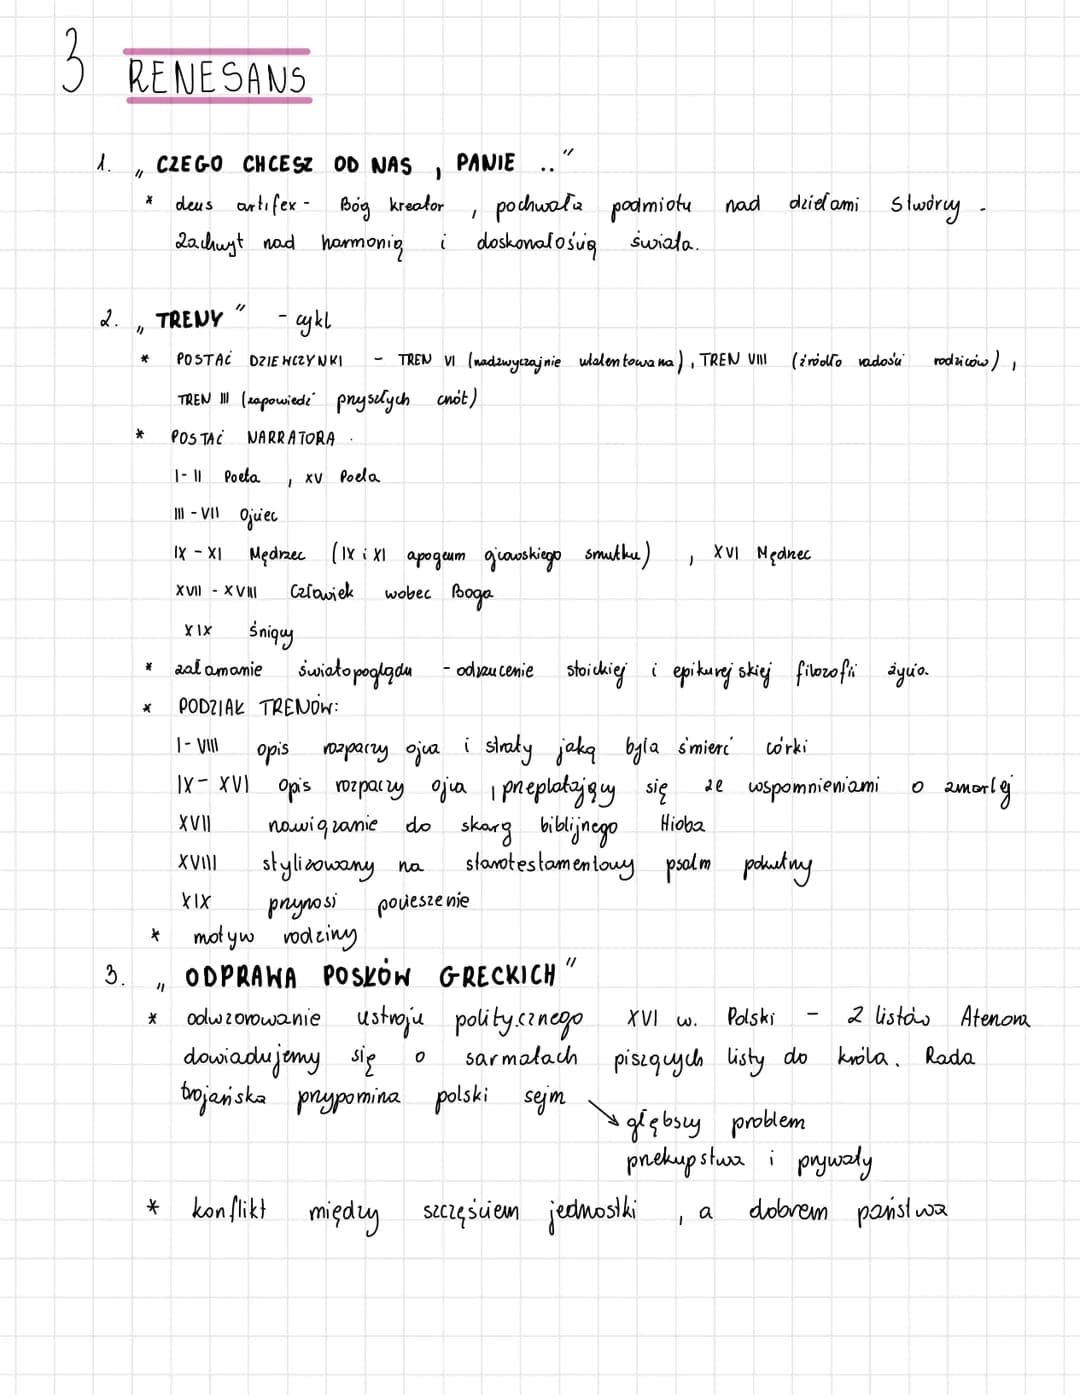 3 RENESANS
1. „CZEGO CHCESZ OD NAS, PANIE .."
* deus artifex - Bóg kreator, pochwała podmiotu nad dziełami stwórcy.
Zachwyt nad harmonią i doskonałością świata.
2. „TRENY" - cykl
* POSTAĆ DZIEWCZYNKI - TREN VI (nadzwyczajnie utalentowana), TREN VIII (źródło radości rodziców),
TREN III (zapowiedź przyszłych cnót)
* POSTAĆ NARRATORA.
I - II Poeta, XV Poeta
III - VII Ojciec
IX - XI Mędrzec (IX i XI apogeum ojcowskiego smutku), XVI Mędrzec
XVII - XVIII Człowiek wobec Boga
XIX śniący
* załamanie światopoglądu - odrzucenie stoickiej i epikurejskiej filozofii życia.
* PODZIAŁ TRENÓW:
I - VIII opis rozpaczy ojca i straty jaką była śmierć córki
IX - XVI opis rozpaczy ojca, przeplatający się ze wspomnieniami o zmarłej
XVII nawiązanie do skarg biblijnego Hioba
XVIII stylizowany na starotestamentowy psalm pokutny
XIX przynosi pocieszenie
* motyw rodziny
3. „ODPRAWA POSŁÓW GRECKICH"
* odwzorowanie ustroju politycznego XVI w. Polski - z listów Atenora
dowiadujemy się o sarmatach piszących listy do króla. Rada
trojańska przypomina polski sejm
głębszy problem
przekupstwa i prywaty
* konflikt między szczęściem jednostki, a dobrem państwa